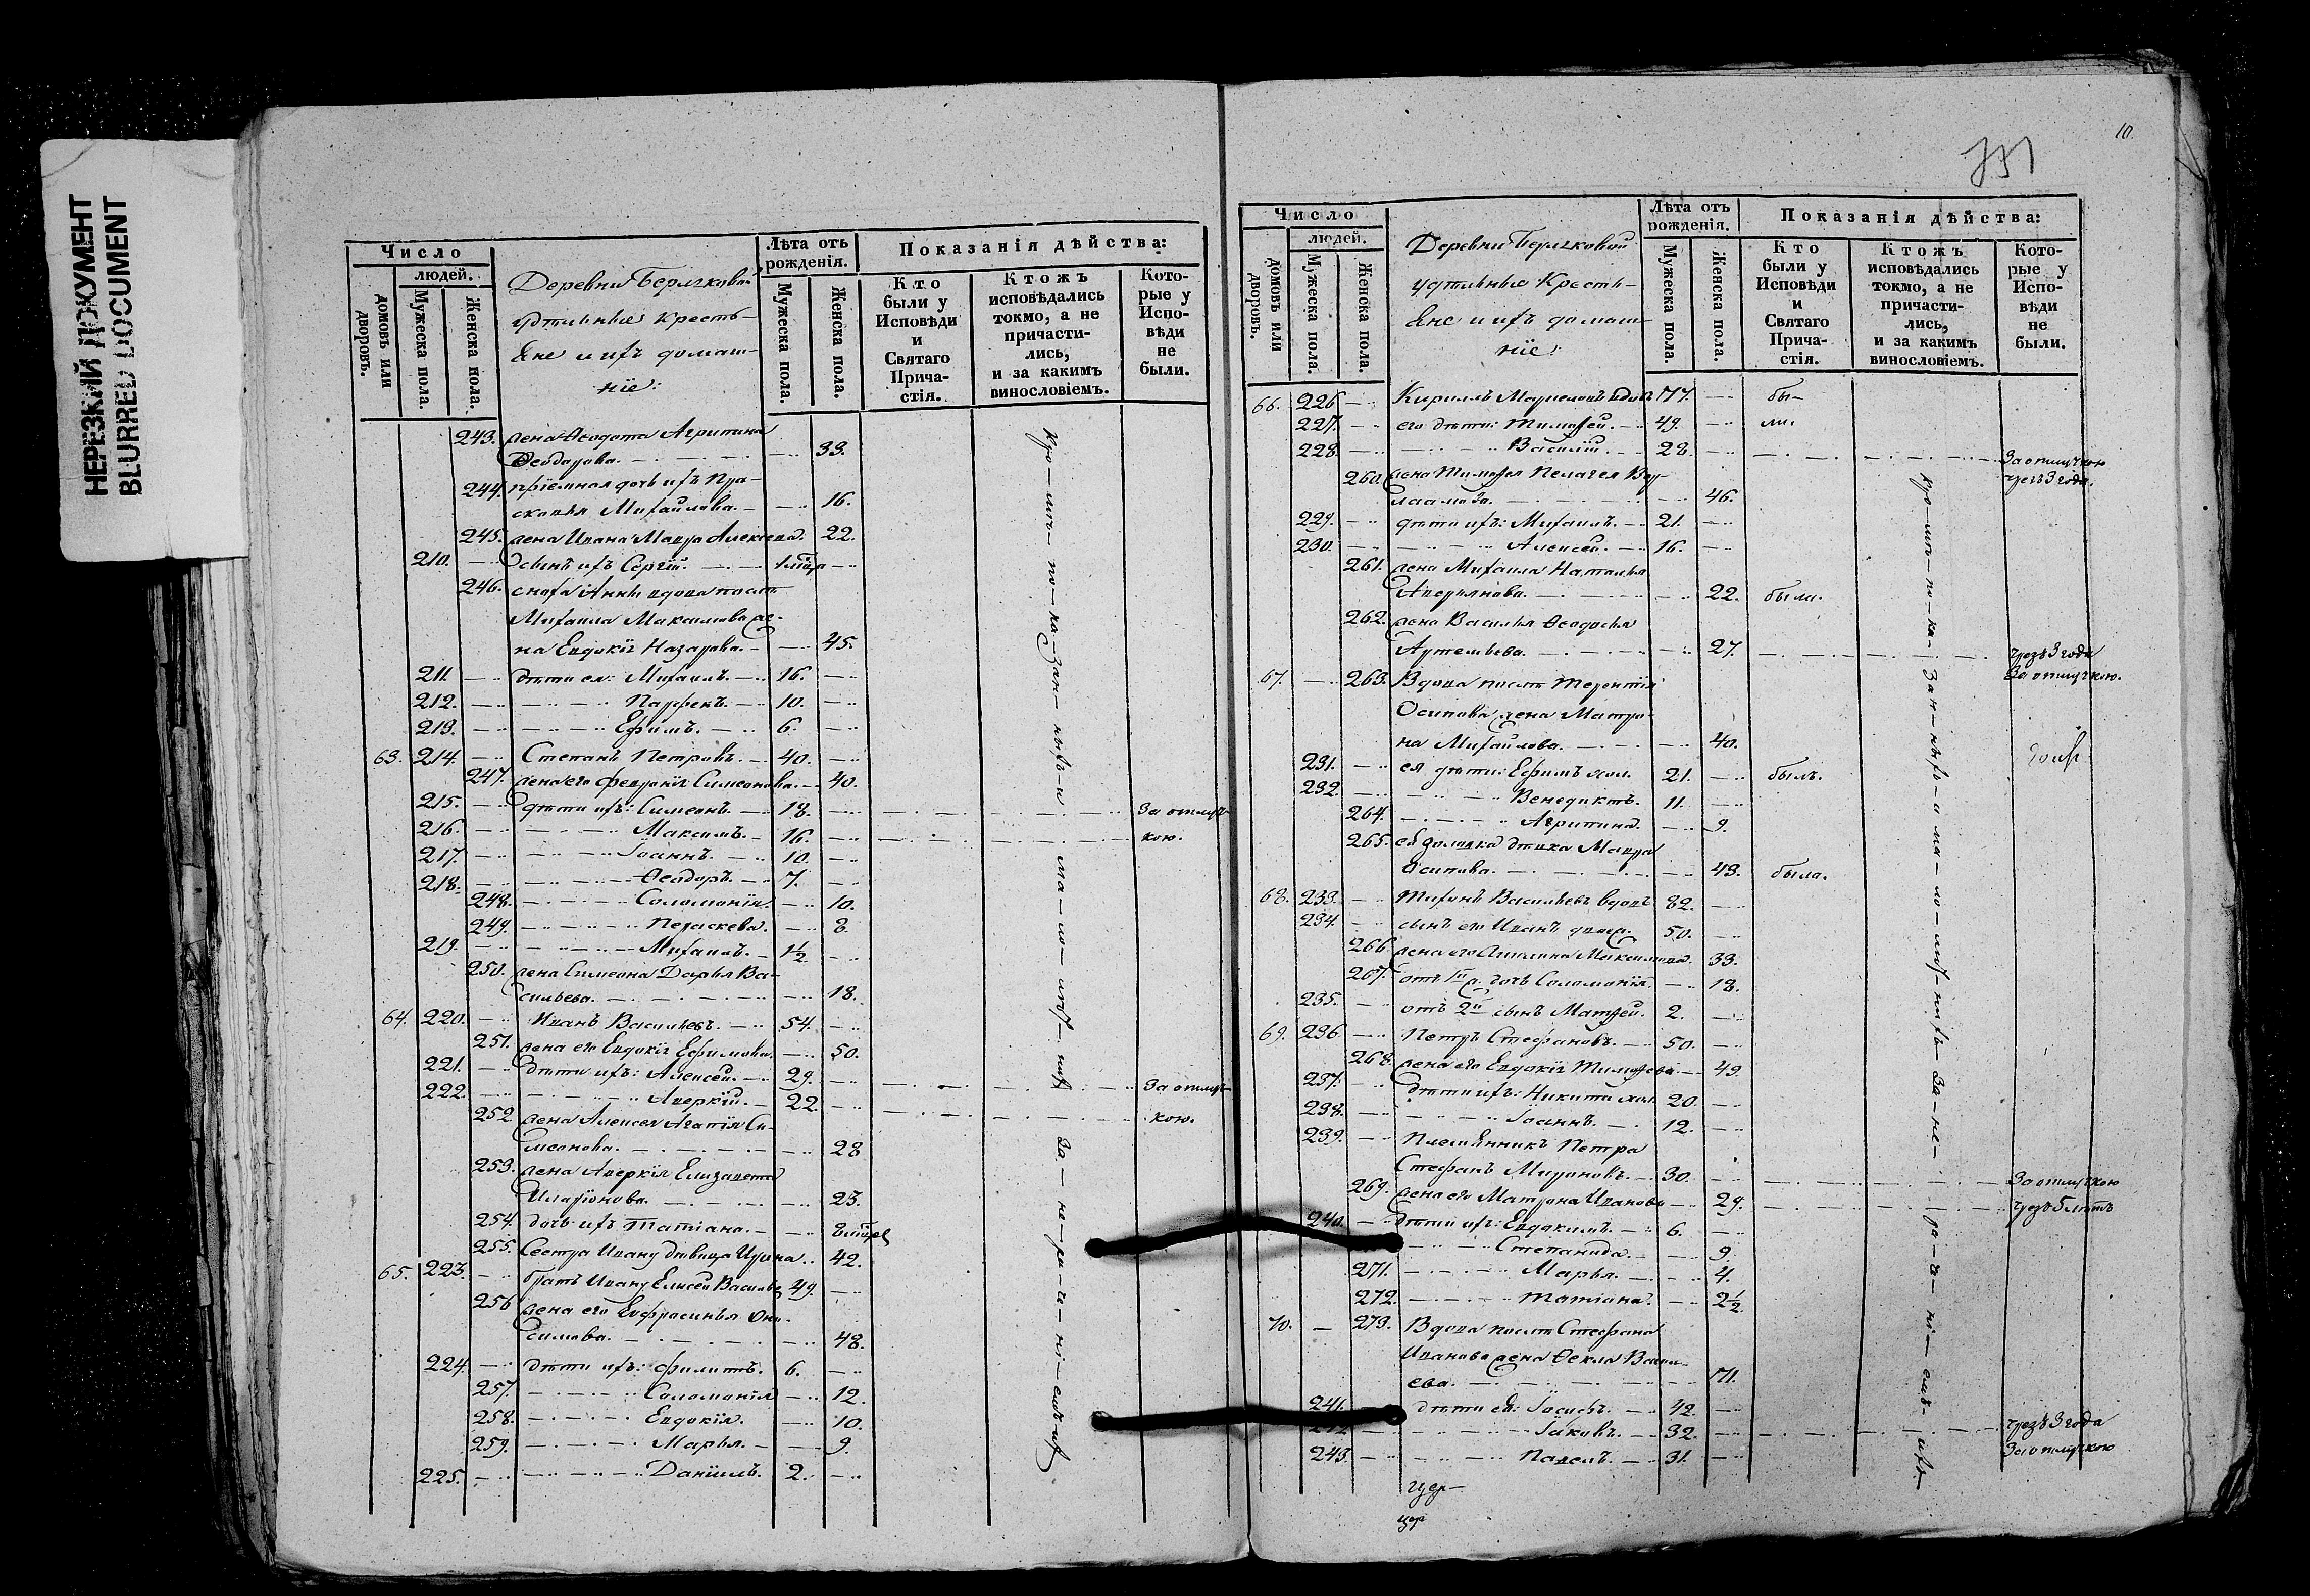 НЕРЕЗКИЙ ДОКУМЕНТ
BLURRED DOCUMENT
Число
людей.
домовъ или дворовъ.
Мужеска пола.
Женска пола.
Деревни
удѣльные кресть-
яне и ихъ домаш-
нiе:
Лѣта отъ рожденiя.
Мужеска пола.
Женска пола.
Показанiя дѣйства:
Кто были у Исповѣди и Святаго Прича-стiя.
Ктожъ исповѣдались токмо, а не причасти-лись, и за какимъ винословiемъ.
Кото-рые у Испо-вѣди не были.
243. жена Ѳеодота Агрипина
Ѳеодорова. 33.
244. прiемная дочь ихъ Пра-
сковья Михайлова. 16.
245. жена Ивана Мавра Алексеева. 22.
210. сынъ ихъ Сергiй.
246. сноха Анны вдова послѣ
Михаила Максимова же-
на Евдокiя Назарова. 45.
211. дѣти ея: Михаилъ. 16.
212. Парфенъ. 10.
213. Ефимъ. 6.
63. 214. Степанъ Петровъ. 40.
247. жена его Феврониiя Симеонова. 40.
215. дѣти ихъ: Симеонъ. 18. За отлуч-
216. Максимъ. 16. кою.
217. Iоаннъ. 10.
218. Ѳеодоръ. 7.
248. Соломонiя. 10.
249. Параскева. 8.
219. Михаилъ. 1½.
250. жена Симеона Дарья Ва-
сильева. 18.
64. 220. Иванъ Васильевъ. 54.
251. жена его Евдокiя Ефимова. 50.
221. дѣти ихъ: Алексей. 29. За отлуч-
222. Аверкiй. 22. кою.
252. жена Алексея Агапiя Си-
меонова. 28
253. жена Аверкiя Елизавета
Иларiонова. 23.
254. дочь ихъ Татiана.
255. Сестра Ивану дѣвица Ирина. 42.
65. 223. братъ Ивану Елисей Васильевъ 49.
256 жена его Евфросинья Они-
симова. 48.
224. дѣти ихъ: Филиппъ. 6.
257. Соломонiя 12.
258. Евдокiя. 10.
259. Марья. 9.
225. Данiилъ. 2.
кро-мѣ-по-ка-зан-ныхъ-и ма-ло-лѣт-нихъ за-не-ра-че-нi-емъ-ихъ
10.
Число
людей.
домовъ или дворовъ.
Мужеска пола.
Женска пола.
Деревни
удѣльные кресть-
яне и ихъ домаш-
нiе:
Лѣта отъ рожденiя.
Мужеска пола.
Женска пола.
Показанiя дѣйства:
Кто были у Исповѣди и Святаго Прича-стiя.
Ктожъ исповѣдались токмо, а не причасти-лись, и за какимъ винословiемъ.
Кото-рые у Испо-вѣди не были.
66. 226 Кириллъ вдовъ 77. бы-
227. его дѣти: Тимофей. 49. ли.
228. Василiй. 28. За отлучкою
чрезъ 3 года.
260. жена Тимофея Пелагея Вар-
лаамова. 46.
229. дѣти ихъ: Михаилъ. 21.
230. Алексей. 16.
261. жена Михаила Наталья
Аверьянова. 22. были.
262. жена Василья Ѳеодосья
Артемьева. 27. чрезъ 3 года
за отлучкою.
67. 263. Вдова послѣ Терентiя
Осипова жена Матро-
на Михайлова. 40.
231. ея дѣти: Ефимъ хол. 21. былъ.
232. Венедиктъ. 11.
264. Агрипина. 9.
265. ея золовка дѣвка Мавра
Осипова. 43. была.
68. 233. Тихонъ Васильевъ вдовъ 82.
234. сынъ его Иванъ 50.
266. жена его Акилина Максимова. 33.
267. отъ 1й дочь Соломонiя. 18.
235. отъ 2й сынъ Матфей. 2.
69. 236. Петръ Стефановъ. 50.
268. жена его Евдокiя Тимофеева. 49.
237. дѣти ихъ: Никита хол. 20.
238. Iоаннъ. 12.
239. Племянникъ Петра
Стефанъ Мироновъ. 30. За отлучкою
269. жена его Матрона Иванова 29. чрезъ 5 лѣтъ
240. дѣти ихъ: Евдокимъ. 6.
Степанида. 9.
271. Марья. 4.
272. Татiана. 2½
70. 273. Вдова послѣ Стефана
Иванова жена Ѳекла Василь-
ева. 71.
241. дѣти ея: Iосифъ. 42.
242 Iаковъ. 32. чрезъ 3 года
243. Павелъ. 31. За отлучкою
кро-мѣ-по-ка-зан-ныхъ-и ма-ло-лѣт-нихъ за-не-ра-че-нi-емъ-ихъ